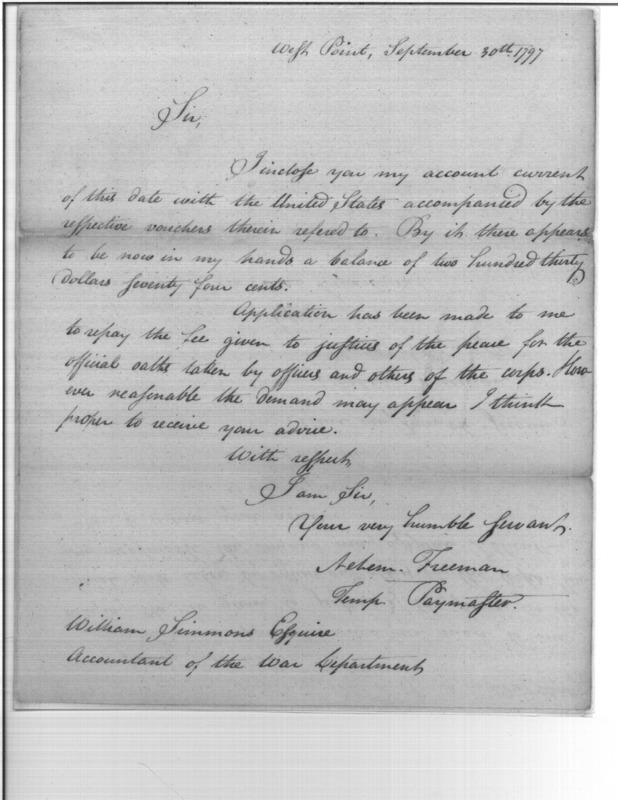 West Point, September 30th. 1797
Sir,
I inclose you my account current
of this date with the United States accompanied by the
respective vouchers therein refered to. By it there appears
to be now in my hands a balance of two hundred thirty
Dollars seventy four cents.
Application has been made to me
to repay the fee given to justices of the peace for the
official oaths taken by officers and others of the corps. How
ever reasonable the demand may appear I think
proper to receive your advice.
With respect
I am Sir,
Your very humble servant.
Nehem. Freeman
Temp. Paymaster.
William Simmons Esquire
Accountant of the War Department